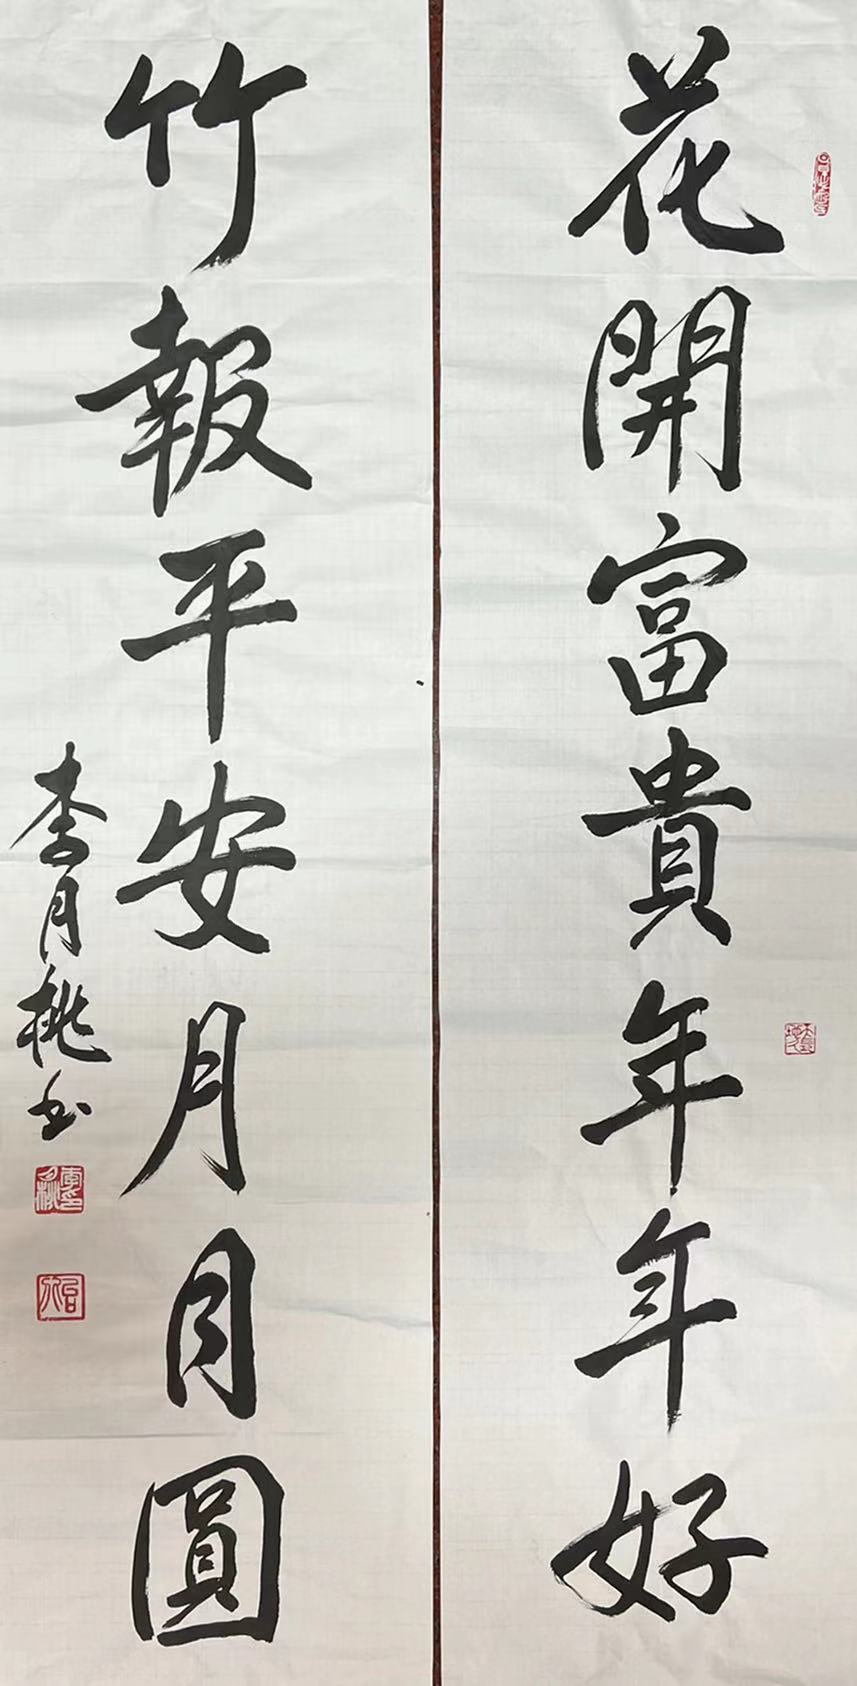 花開富貴年年好
竹報平安月月圓
李月桃书